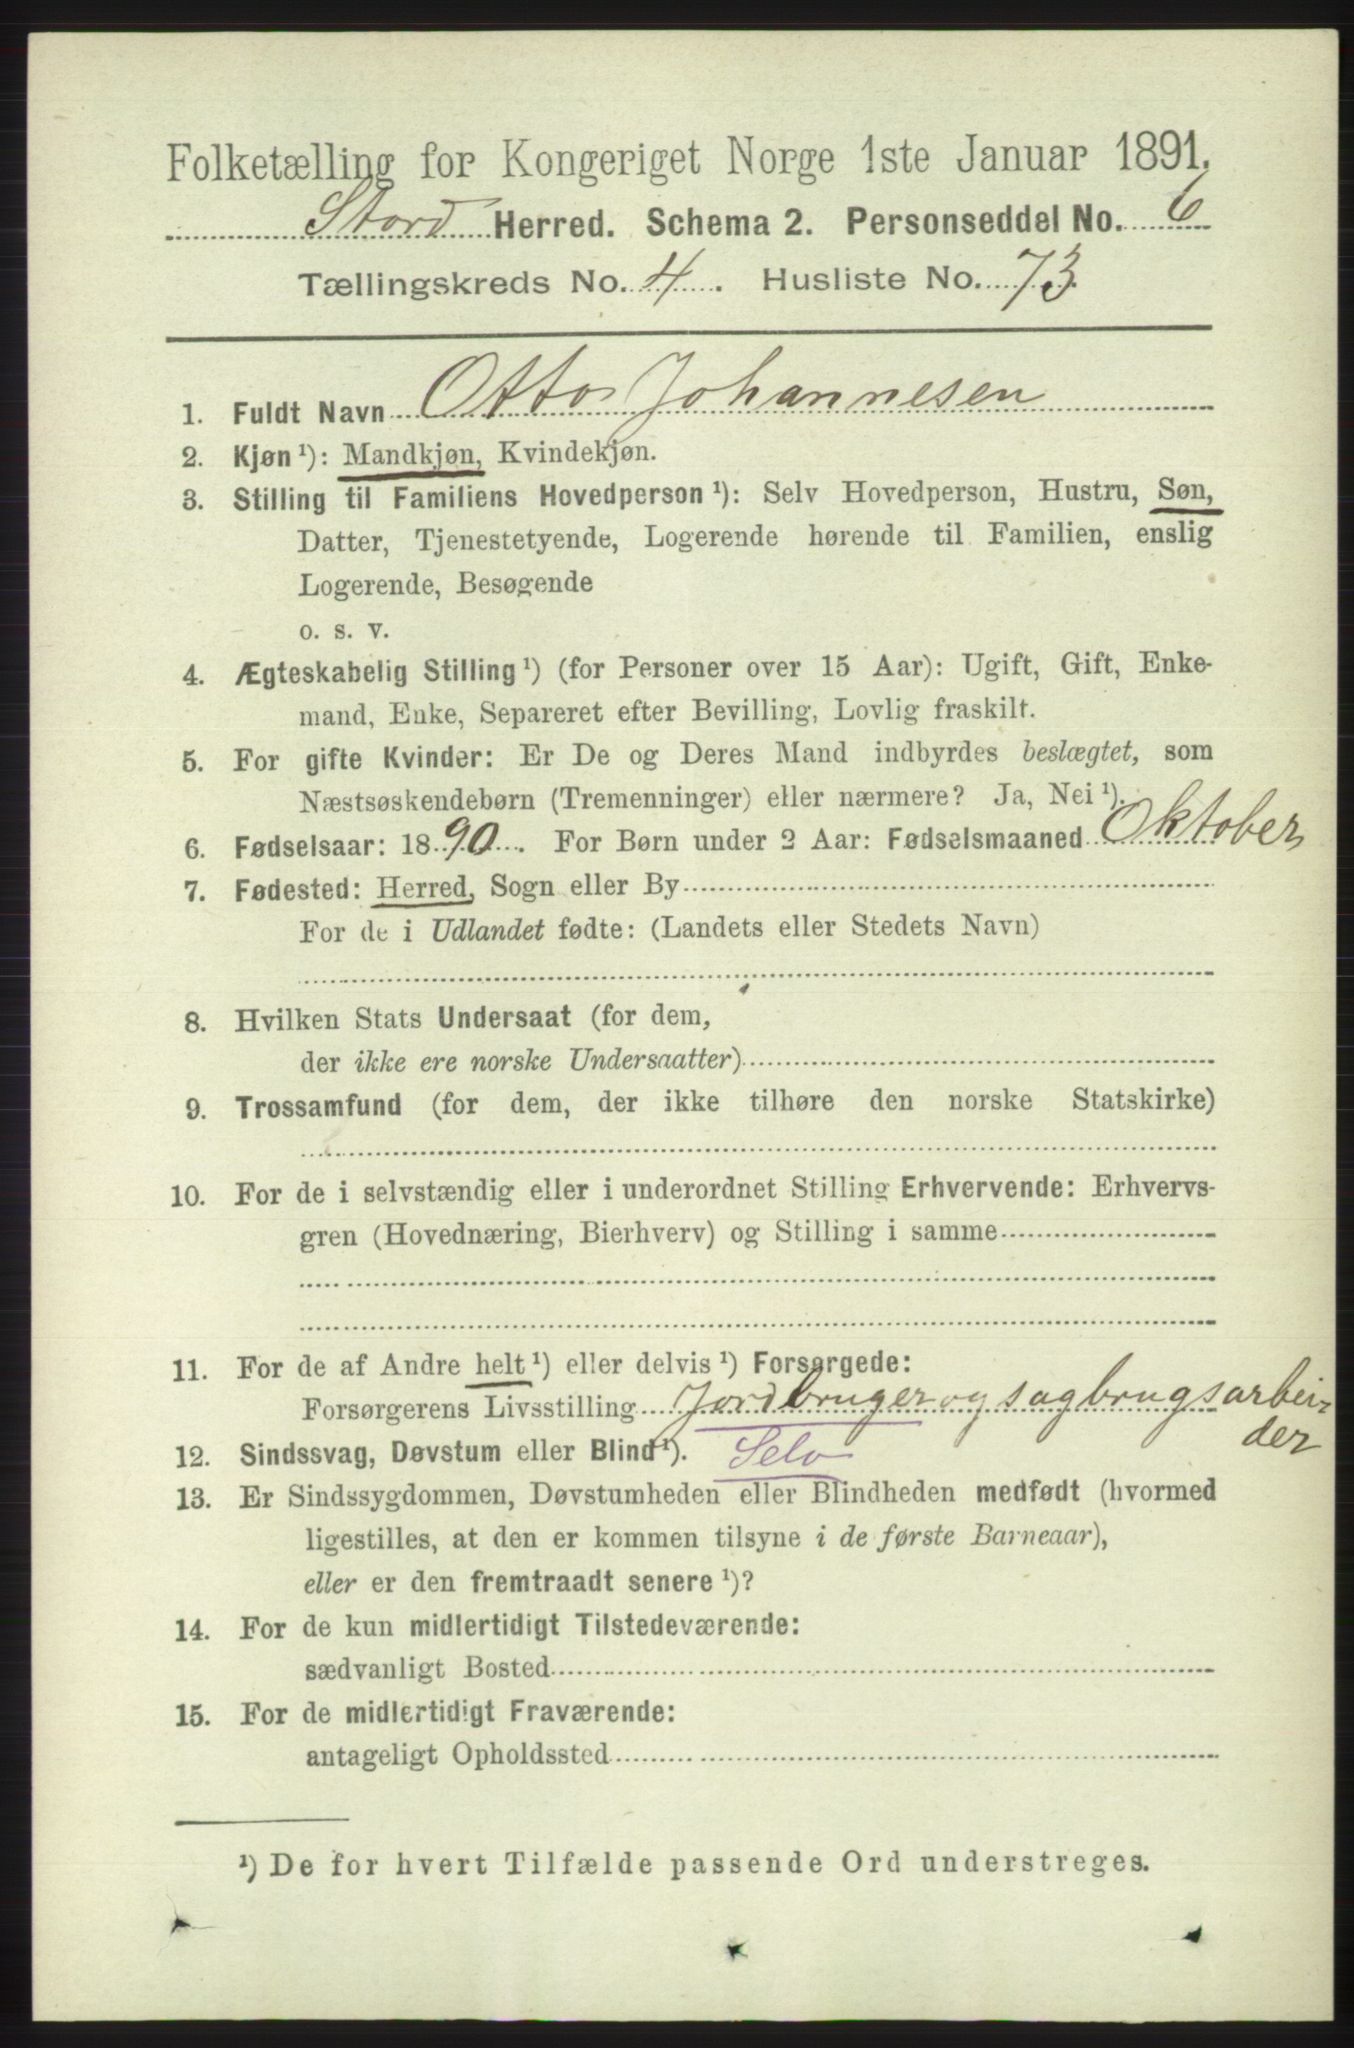 Folketælling for Kongeriget Norge 1ste Januar 1891.
Stord Herred. Schema 2. Personseddel No. 6
Tællingskreds No. 4. Husliste No. 73.
1. Fuldt Navn Otto Johannesen
2. Kjøn¹): Mandkjøn, Kvindekjøn.
3. Stilling til Familiens Hovedperson¹): Selv Hovedperson, Hustru, Søn,
Datter, Tjenestetyende, Logerende hørende til Familien, enslig
Logerende, Besøgende
o. s. v.
4. Ægteskabelig Stilling¹) (for Personer over 15 Aar): Ugift, Gift, Enke-
mand, Enke, Separeret efter Bevilling, Lovlig fraskilt.
5. For gifte Kvinder: Er De og Deres Mand indbyrdes beslægtet, som
Næstsøskendebørn (Tremenninger) eller nærmere? Ja, Nei¹).
6. Fødselsaar: 1890. For Børn under 2 Aar: Fødselsmaaned Oktober
7. Fødested: Herred, Sogn eller By
For de i Udlandet fødte: (Landets eller Stedets Navn)
8. Hvilken Stats Undersaat (for dem,
der ikke ere norske Undersaatter)
9. Trossamfund (for dem, der ikke tilhøre den norske Statskirke)
10. For de i selvstændig eller i underordnet Stilling Erhvervende: Erhvervs-
gren (Hovednæring, Bierhverv) og Stilling i samme
11. For de af Andre helt¹) eller delvis¹) Forsørgede:
Forsørgerens Livsstilling Jordbruger og sagbrugsarbei-
der
12. Sindssvag, Døvstum eller Blind¹). Selv
13. Er Sindssygdommen, Døvstumheden eller Blindheden medfødt (hvormed
ligestilles, at den er kommen tilsyne i de første Barneaar),
eller er den fremtraadt senere¹)?
14. For de kun midlertidigt Tilstedeværende:
sædvanligt Bosted
15. For de midlertidigt Fraværende:
antageligt Opholdssted
¹) De for hvert Tilfælde passende Ord understreges.